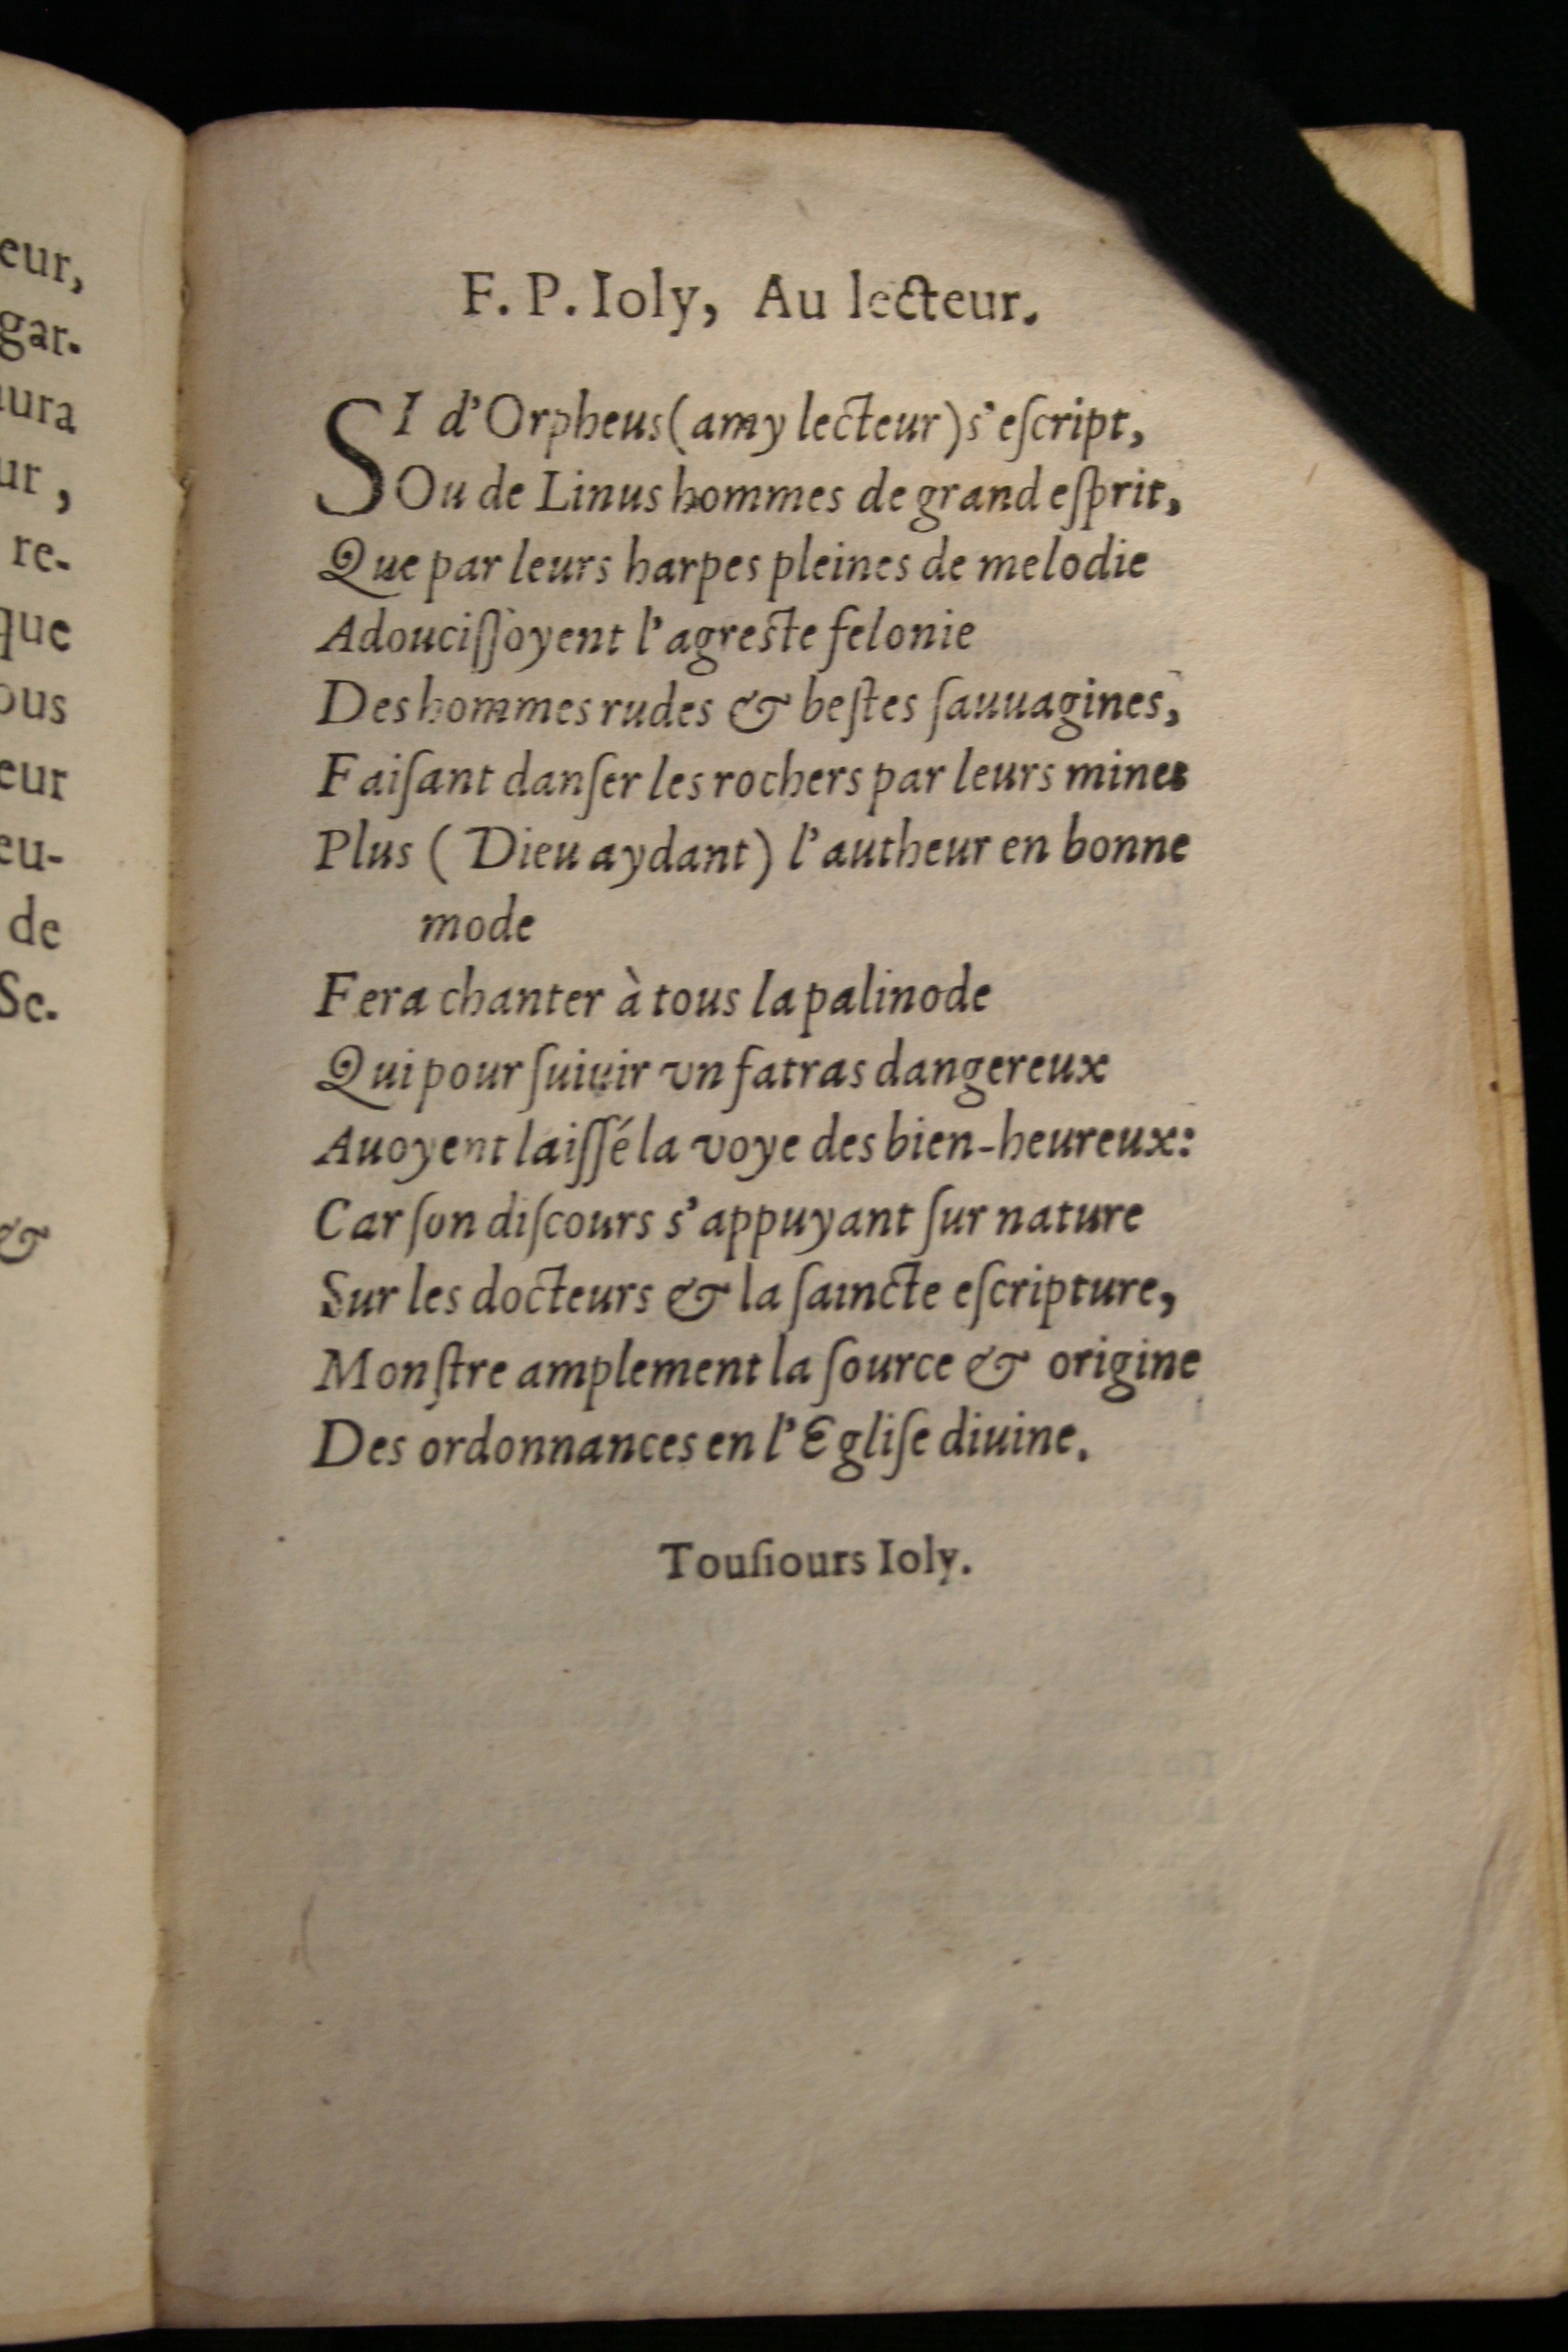 eur,
gar.
ur,
re-
que
ous
eur
eu-
de
Se.
&
F. P. Ioly, Au lecteur.
SI d'Orpheus (amy lecteur) s'eſcript,
Ou de Linus hommes de grand eſprit,
Que par leurs harpes pleines de melodie
Adouciſſoyent l'agreſte felonie
Des hommes rudes & beſtes ſauuagines,
Faiſant danſer les rochers par leurs mines
Plus (Dieu aydant) l'autheur en bonne
mode
Fera chanter à tous la palinode
Qui pour ſuiuir vn fatras dangereux
Auoyent laiſſé la voye des bien-heureux:
Car ſon diſcours s'appuyant ſur nature
Sur les docteurs & la ſaincte eſcripture,
Monſtre amplement la ſource & origine
Des ordonnances en l'Egliſe diuine.
Touſiours Ioly.